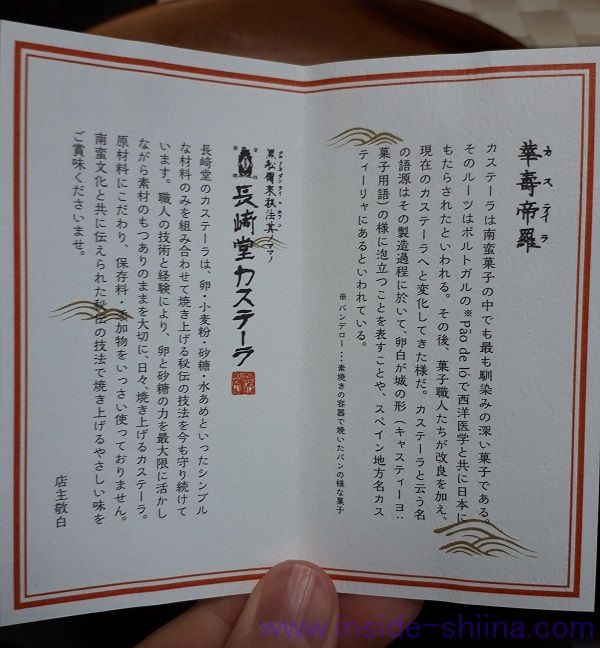 カステイラ
華壽帝羅
カステーラは南蛮菓子の中でも最も馴染みの深い菓子である。
そのルーツはポルトガルの※Pão de lóで西洋医学と共に日本に
もたらされたといわれる。その後、菓子職人たちが改良を加え、
現在のカステーラへと変化してきた様だ。カステーラと云う名
の語源はその製造過程に於いて、卵白が城の形（キャスティーヨ：
菓子用語）の様に泡立つことを表すことや、スペイン地方名カス
ティーリャにあるといわれている。
※パンデロー…素焼きの容器で焼いたパンの様な菓子
長﨑堂カステーラ
長﨑堂のカステーラは、卵・小麦粉・砂糖・水あめといったシンプル
な材料のみを組み合わせて焼き上げる秘伝の技法を今も守り続けて
います。職人の技術と経験により、卵と砂糖の力を最大限に活かし
ながら素材のもつありのままを大切に、日々、焼き上げるカステーラ。
原材料にこだわり、保存料・添加物をいっさい使っておりません。
南蛮文化と共に伝えられた秘伝の技法で焼き上げるやさしい味を
ご賞味くださいませ。
店主敬白
www.inside-shiina.com